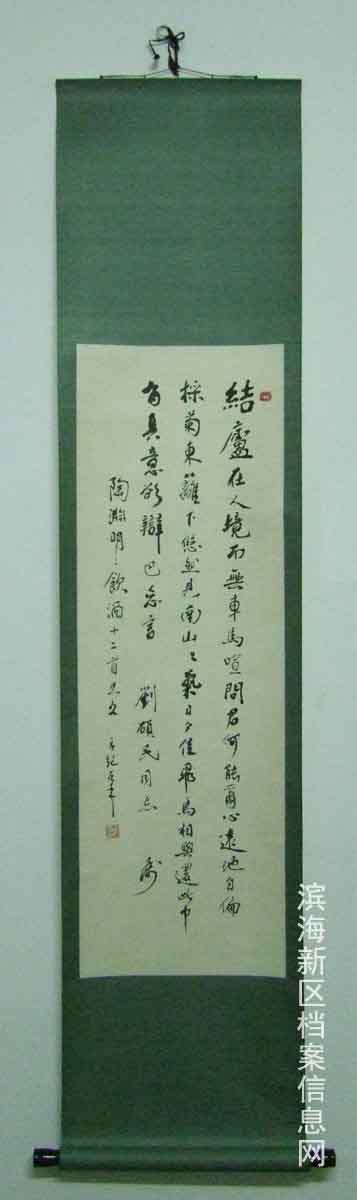 結廬在人境而無車馬喧問君何能爾心遠地自偏
採菊東籬下悠然見南山々氣日夕佳飛鳥相與還此中
有真意欲辯已忘言 劉碩民同志
陶淵明之飲酒十二首其五 方紀左手
滨海新区档案信息网